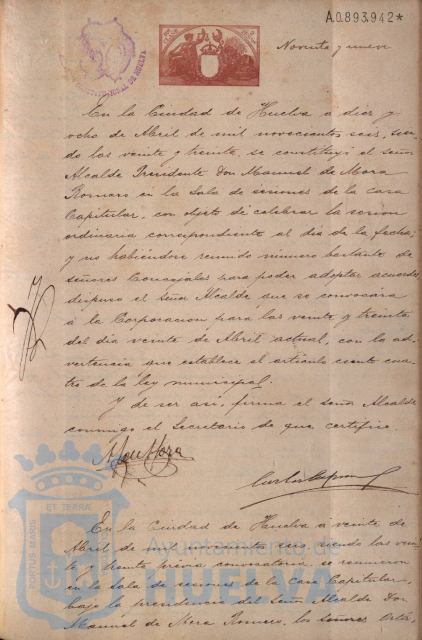 A.0.893.942*
Noventa y nueve
En la Ciudad de Huelva a diez y
ocho de Abril de mil novecientos seis, sien-
do las veinte y treinta, se constituyó el señor
Alcalde Presidente Don Manuel de Mora
Romero en la Sala de sesiones de la casa
Capitular, con objeto de celebrar la sesion
ordinaria correspondiente al dia de la fecha;
y no habiendose reunido numero bastante de
señores Concejales para poder adoptar acuerdos
dispuso el Señor Alcalde que se convocára
á la Corporacion para las veinte y treinta
del dia veinte de Abril actual, con la ad-
vertencia que establece el artículo ciento cua-
tro de la ley municipal.
Y de ser así, firma el señor Alcalde
conmigo el Secretario de que certifico.
En la Ciudad de Huelva a veinte de
Abril de mil novecientos seis, siendo las vein-
te y treinta previa convocatoria se reunieron
en la sala de sesiones de la Casa Capitular,
bajo la presidencia del Señor Alcalde Don
Manuel de Mora Romero, los Señores
Ayuntamiento de
HUELVA
PORTUS MARIS
ET TERRAE